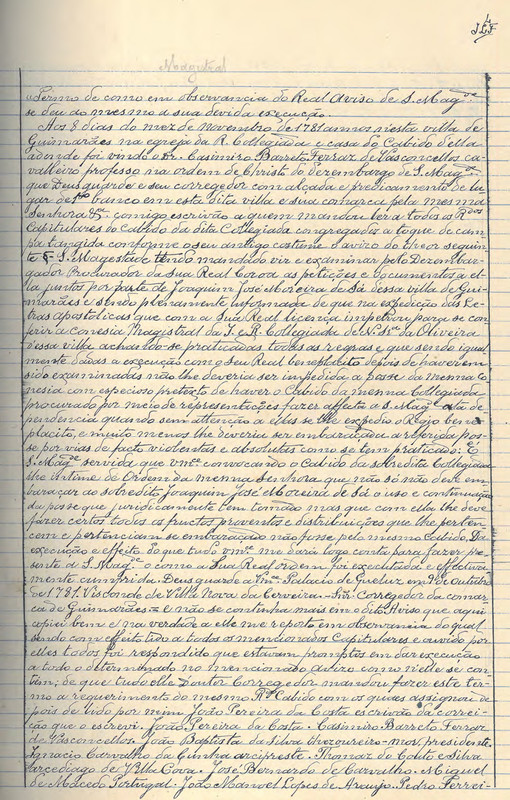 4
JLF
Magistral
"Termo de como em observancia do Real Aviso de S. Magde
se deu do mesmo a sua devida execução.
Aos 8 dias do mez de Novembro de 1781 annos nesta villa de
Guimarães na egreja da R. Collegiada e casa do Cabido d'ella
adonde foi vindo o Dr. Casimiro Barreto Ferraz de Vasconcellos ca-
valleiro professo na ordem de Christo do dezembargo de S. Magde
que Deus guarde e seu corregedor com alçada e predicamento de lu-
gar de 1ro banco em esta dita villa e sua comarca pela mesma
Senhora &a comigo escrivão a quem mandou ler a todos os Rdos
Capitulares do Cabido da dita Collegiada congregados a toque de cam-
pa tangida conforme o seu antigo costume o avizo do theor seguin-
te = S. Magestade tendo mandado vir e examinar pelo Dezembar-
gador Procurador da Sua Real Coroa as petições e documentos a el-
la juntos por parte de Joaquim José Moreira de Sá dessa villa de Gui-
marães e sendo plenamente informada de que na expedição das Le-
tras apostolicas que com a Sua Real licença impetrou para se con-
ferir a conesia Magistral da I. e R. Collegiada de N. Sra da Oliveira
dessa villa achando-se praticadas todas as regras e que sendo igual-
mente dadas a execução com o seu Real beneplacito depois de haverem
sido examinadas não lhe deveria ser impedida a posse da mesma Co-
nesia com especioso pretexto de haver o Cabido da mesma Collegiada
procurado por meio de representações fazer affecta a S. Magde esta de-
pendencia quando sem attenção a ellas se lhe expedio o Regio bene-
placito, e muito menos lhe deveria ser embaraçada a referida pos-
se por vias de facto violentas e absolutas como se tem praticado: É
S. Magde servida que vmce convocando o Cabido da sobredita Collegiada
lhe intime de Ordem da mesma Senhora que não só não deve em-
baraçar ao sobredito Joaquim José Moreira de Sá o uso e continuação
da posse que juridicamente tem tomado mas que com ella lhe deve
fazer certos todos os fructos proventos e distribuições que lhe perten-
cem e pertenciam se embaraçado não fosse pelo mesmo Cabido. Da
execução e effeito do que tudo vmce me dará logo conta para fazer pre-
sente a S. Magde o como a Sua Real ordem foi executada e effectiva-
mente cumprida Deus guarde a Vmce. Palacio de Queluz em de outubro
de 1781. Visconde de Villa Nova da Cerveira = Snr. Corregedor da comar-
ca de Guimarães = e não se continha mais em o dito Aviso que aqui
copiei bem e na verdade a elle me reporto em observancia do qual
sendo com effeito lido a todos os mencionados Capitulares e ouvido por
elles todos foi respondido que estavam promptos em dar execução
a todo o determinado no mencionado avizo como nelle se con-
tem; de que tudo elle Doutor Corregedor mandou fazer este ter-
mo a requerimento do mesmo Rdo Cabido com os quaes assignou de-
pois de lido por mim João Pereira da Costa escrivão da correi-
ção que o escrevi. João Pereira da Costa. Casimiro Barreto Ferraz
de Vasconcellos. João Baptista da Silva thezoureiro-mor, presidente.
Ignacio Carvalho da Cunha arcipreste. Thomaz do Couto e Silva
arcediago de Villa Cova. José Bernardo de Carvalho. Miguel
de Macedo Portugal. João Manoel Lopes de Araujo. Pedro Perrei-